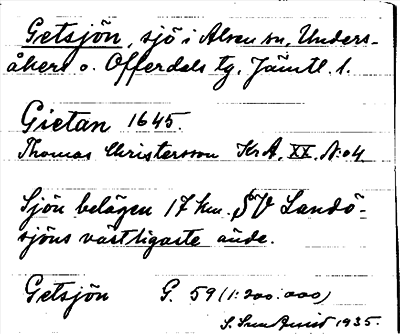 Getsjön, sjö i Alsen sn, Unders-
åkers o. Offerdals tg, Jämtl. l.
Gietan 1645.
Thomas Christersson Kr A, XX, N:o 4
Sjön belägen 17 km. SV Landö-
sjöns västligaste ände.
Getsjön G. 59 (1:200.000)
S. Sundquist 1935.